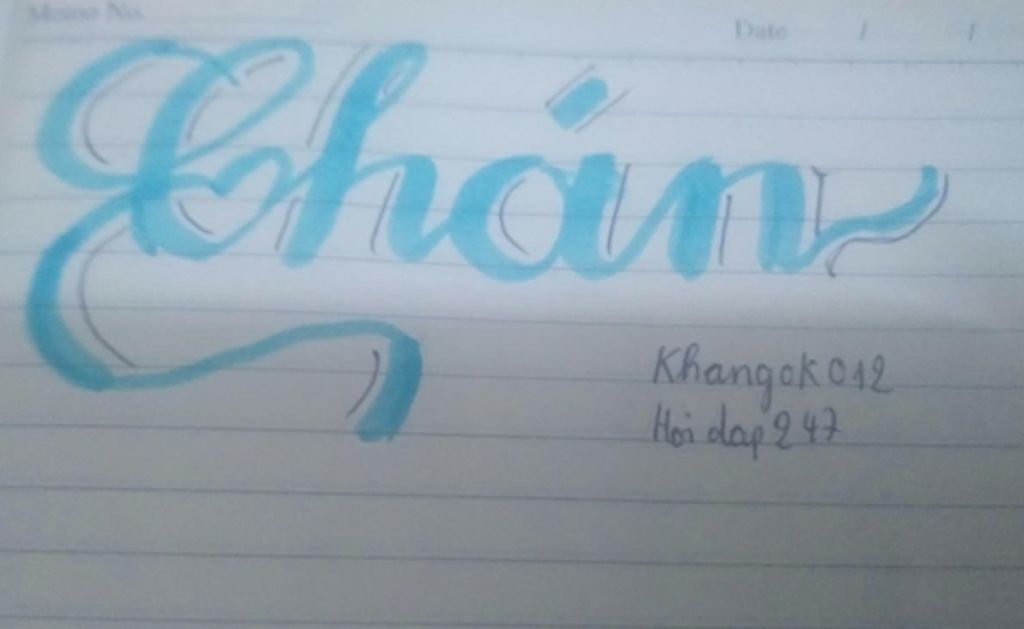 Memo No.
Date / /
Chán
Khangok012
Hoi dap 247